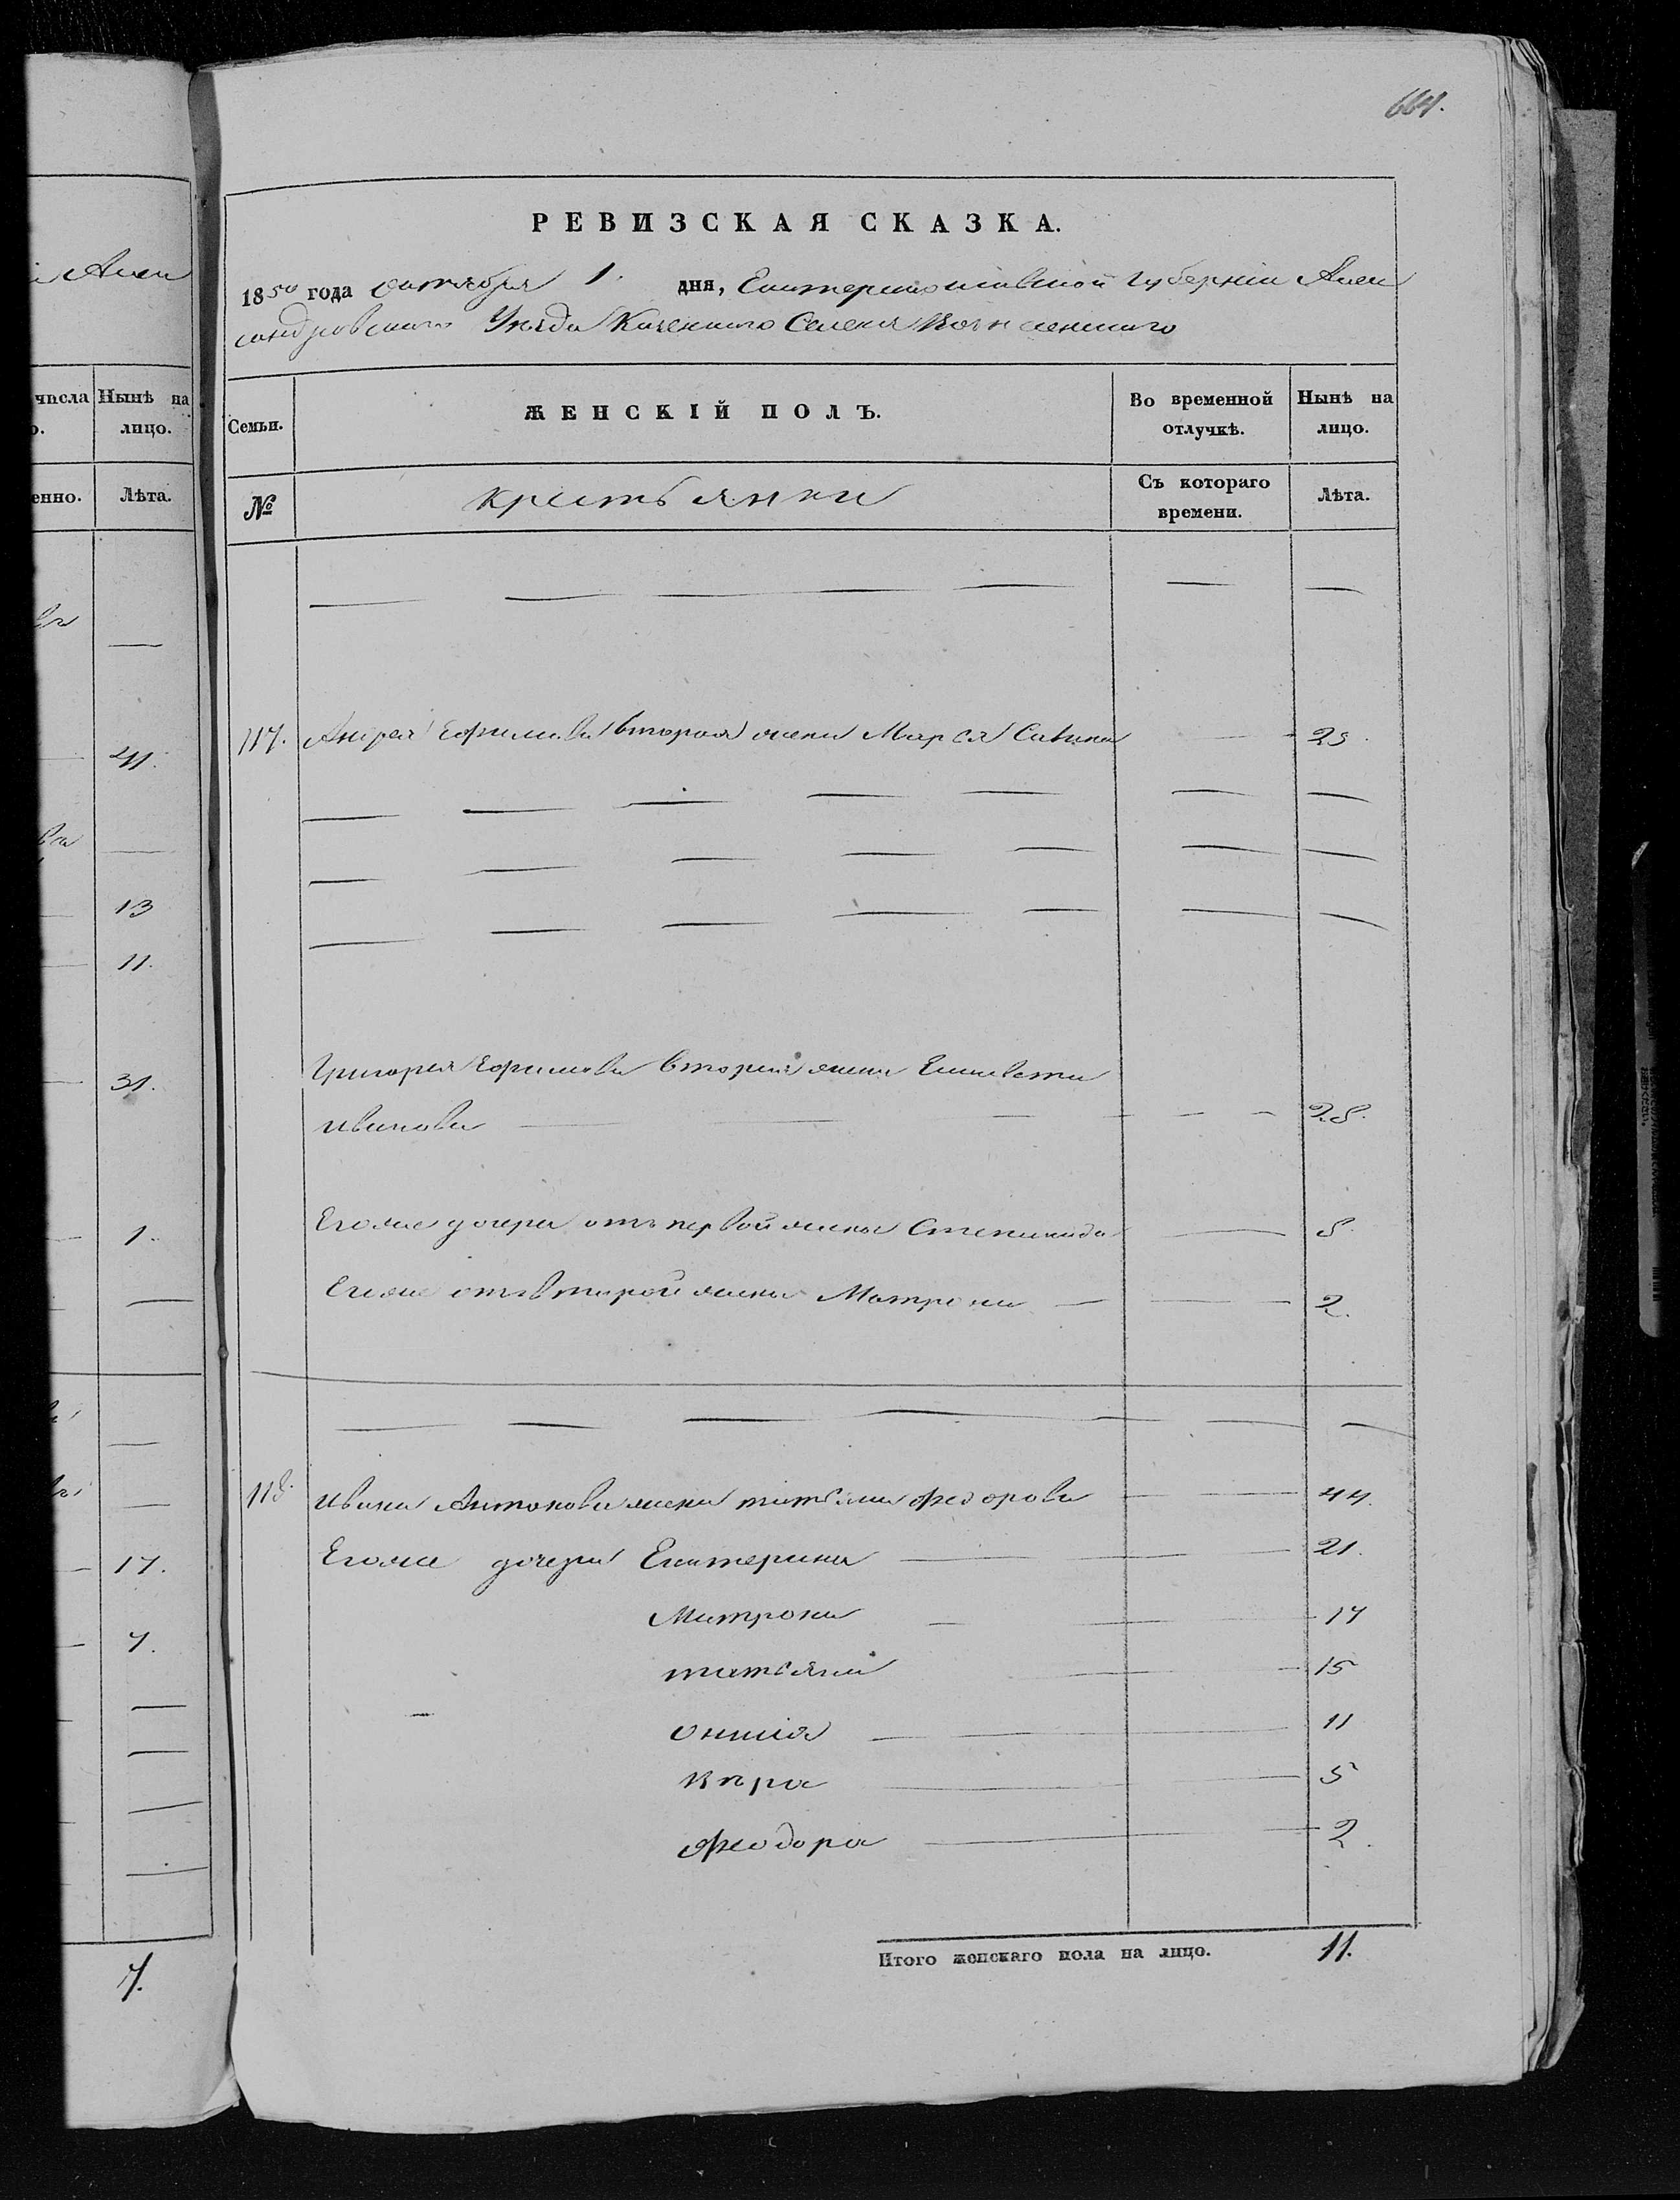 664.
Алек
РЕВИЗСКАЯ СКАЗКА.
1850 года октября 1. дня, Екатеринославской губернии Алек
сандровского Уезда Казенного Селения Вознесенского
числа Нынѣ на
лицо.
Семьи.
ЖЕНСКІЙ ПОЛЪ.
Во временной отлучкѣ.
Нынѣ на лицо.
енно. Лѣта.
№
крестьянки
Съ котораго времени.
Лѣта.
41.
13
11.
31.
1.
17.
7.
7.
117. Андрея Ефимова вторая жена Марья Савина — 25.
Григорья Ефимова вторая жена Елисавета
Иванова — 28.
Егоже дочери отъ первой жены Степанида — 8.
Егоже отъ второй жены Матрона — 2.
118. Ивана Антонова жена татьяна Федорова — 44.
Егоже дочери Екатерина — 21.
Матрона — 17
татьяна — 15
Ониія — 11
Вѣра — 5
Феодора — 2.
Итого женскаго пола на лицо. 11.